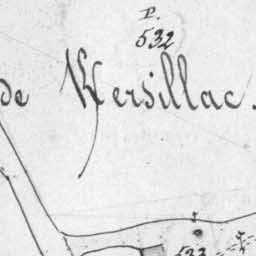 P.
532
de Kersillac.
533